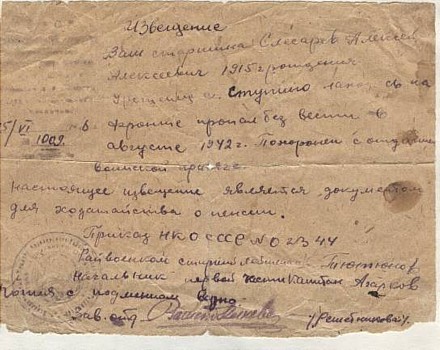 Извещение
Ваш старшина Слесарев Алексей
Алексеевич 1915 г рождения
Урожениц с. Ступино
15/VI 1069. в фронте пропал без вести в
августе 1942 г. Похоронен с отданием
воинской
Настоящее извещение является документом
для ходатайства о пенсии.
Приказ НКО СССР № 0234ч
Райвоенком старший лейтенант Тютюнов
Начальник первой части Капитан Азарков
Копия с подлинным верно
Зав. отд /Решетникова/